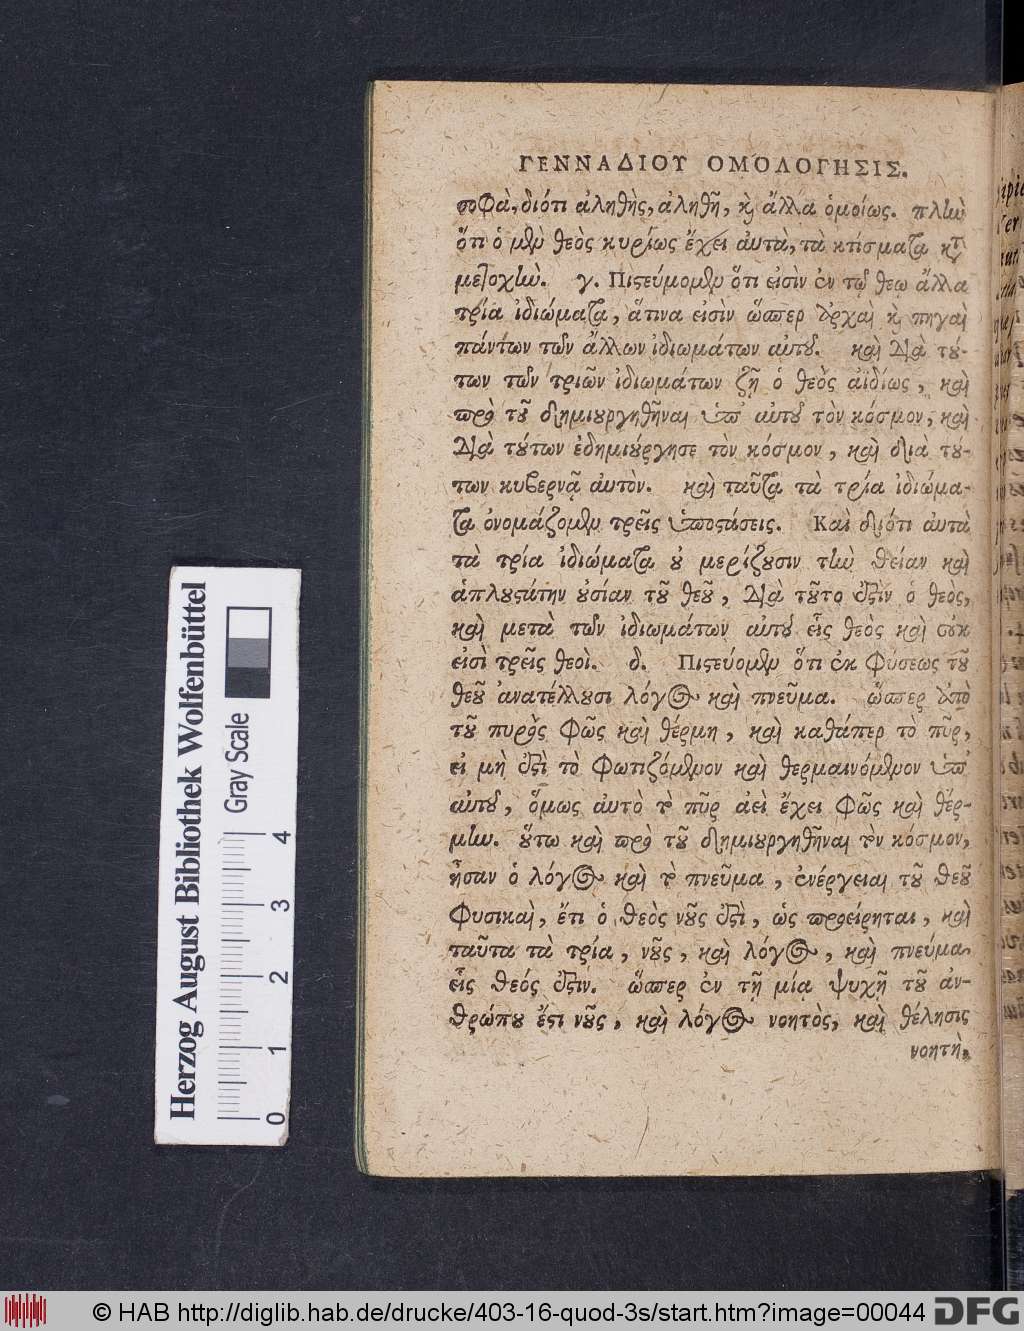 ΓΕΝΝΑΔΙΟΥ ΟΜΟΛΟΓΗΣΙΣ.
σοφὰ, διότι ἀληθὴς, ἀληθῆ, καὶ ἄλλα ὁμοίως. πλὴν
ὅτι ὁ μὲν θεὸς κυρίως ἔχει αὐτὰ, τὰ κτίσματα κτ
μετοχήν. γ. Πιστεύομεν ὅτι εἰσὶν ἐν τῷ θεῷ ἄλλα
τρία ἰδιώματα, ἅτινα εἰσὶν ὥσπερ ἀρχαὶ καὶ πηγαὶ
πάντων τῶν ἄλλων ἰδιωμάτων αὐτοῦ. καὶ διὰ τού-
των τῶν τριῶν ἰδιωμάτων ζῇ ὁ θεὸς ἀϊδίως, καὶ
πρὸ τοῦ δημιουργηθῆναι ὑπ' αὐτοῦ τὸν κόσμον, καὶ
διὰ τούτων ἐδημιούργησε τὸν κόσμον, καὶ διὰ τού-
των κυβερνᾷ αὐτὸν. καὶ ταῦτα τὰ τρία ἰδιώμα-
τα ὀνομάζομεν τρεῖς ὑποστάσεις. Καὶ διότι αὐτὰ
τὰ τρία ἰδιώματα οὐ μερίζουσιν τὴν θείαν καὶ
ἁπλουστάτην οὐσίαν τοῦ θεοῦ, διὰ τοῦτο ἐστὶν ὁ θεὸς,
καὶ μετὰ τῶν ἰδιωμάτων αὐτοῦ εἷς θεὸς καὶ οὐκ
εἰσὶ τρεῖς θεοὶ. δ. Πιστεύομεν ὅτι ἐκ φύσεως τοῦ
θεοῦ ἀνατέλλουσι λόγος καὶ πνεῦμα. ὥσπερ ἀπὸ
τοῦ πυρὸς φῶς καὶ θέρμη, καὶ καθάπερ τὸ πῦρ,
εἰ μὴ ἐστὶ τὸ φωτιζόμενον καὶ θερμαινόμενον ὑπ'
αὐτοῦ, ὅμως αὐτὸ τὸ πῦρ ἀεὶ ἔχει φῶς καὶ θέρ-
μην. οὕτω καὶ πρὸ τοῦ δημιουργηθῆναι τὸν κόσμον,
ἦσαν ὁ λόγος καὶ τὸ πνεῦμα, ἐνέργειαι τοῦ θεοῦ
φυσικαὶ, ἔτι ὁ θεὸς νοῦς ἐστὶ, ὡς προείρηται, καὶ
ταῦτα τὰ τρία, νοῦς, καὶ λόγος, καὶ πνεύμα
εἷς θεός ἐστίν. ὥσπερ ἐν τῇ μίᾳ ψυχῇ τοῦ ἀν-
θρώπου ἔστι νοῦς, καὶ λόγος νοητὸς, καὶ θέλησις
νοητὴ,
Herzog August Bibliothek Wolfenbüttel
Gray Scale
0 1 2 3 4
© HAB http://diglib.hab.de/drucke/403-16-quod-3s/start.htm?image=00044
DFG